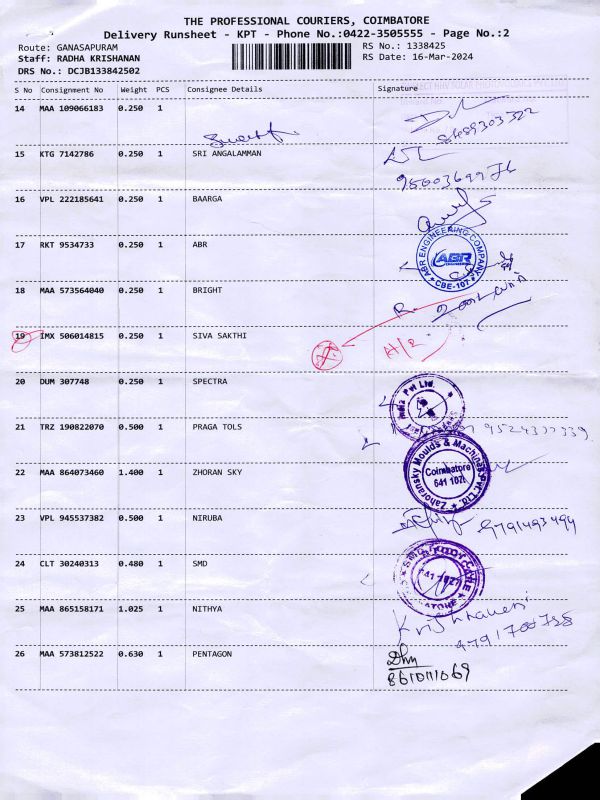 THE PROFESSIONAL COURIERS, COIMBATORE
Delivery Runsheet - KPT - Phone No.:0422-3505555 - Page No.:2
Route: GANASAPURAM
RS No.: 1338425
Staff: RADHA KRISHANAN
RS Date: 16-Mar-2024
DRS No.: DCJB133842502
S No Consignment No Weight PCS Consignee Details Signature
14 MAA 109066183 0.250 1
15 KTG 7142786 0.250 1 SRI ANGALAMMAN
16 VPL 222185641 0.250 1 BAARGA
17 RKT 9534733 0.250 1 ABR
ABR ENGINEERING COMPANY
ABR
CBE-107
18 MAA 573564040 0.250 1 BRIGHT
19 IMX 506014815 0.250 1 SIVA SAKTHI
20 DUM 307748 0.250 1 SPECTRA
India Pvt Ltd.
21 TRZ 190822070 0.500 1 PRAGA TOLS
22 MAA 864073460 1.400 1 ZHORAN SKY
Zahoransky Moulds & Machines Pvt. Ltd.
Coimbatore
641 107
23 VPL 945537382 0.500 1 NIRUBA
9791493494
24 CLT 30240313 0.480 1 SMD
25 MAA 865158171 1.025 1 NITHYA
26 MAA 573812522 0.630 1 PENTAGON
8610111069